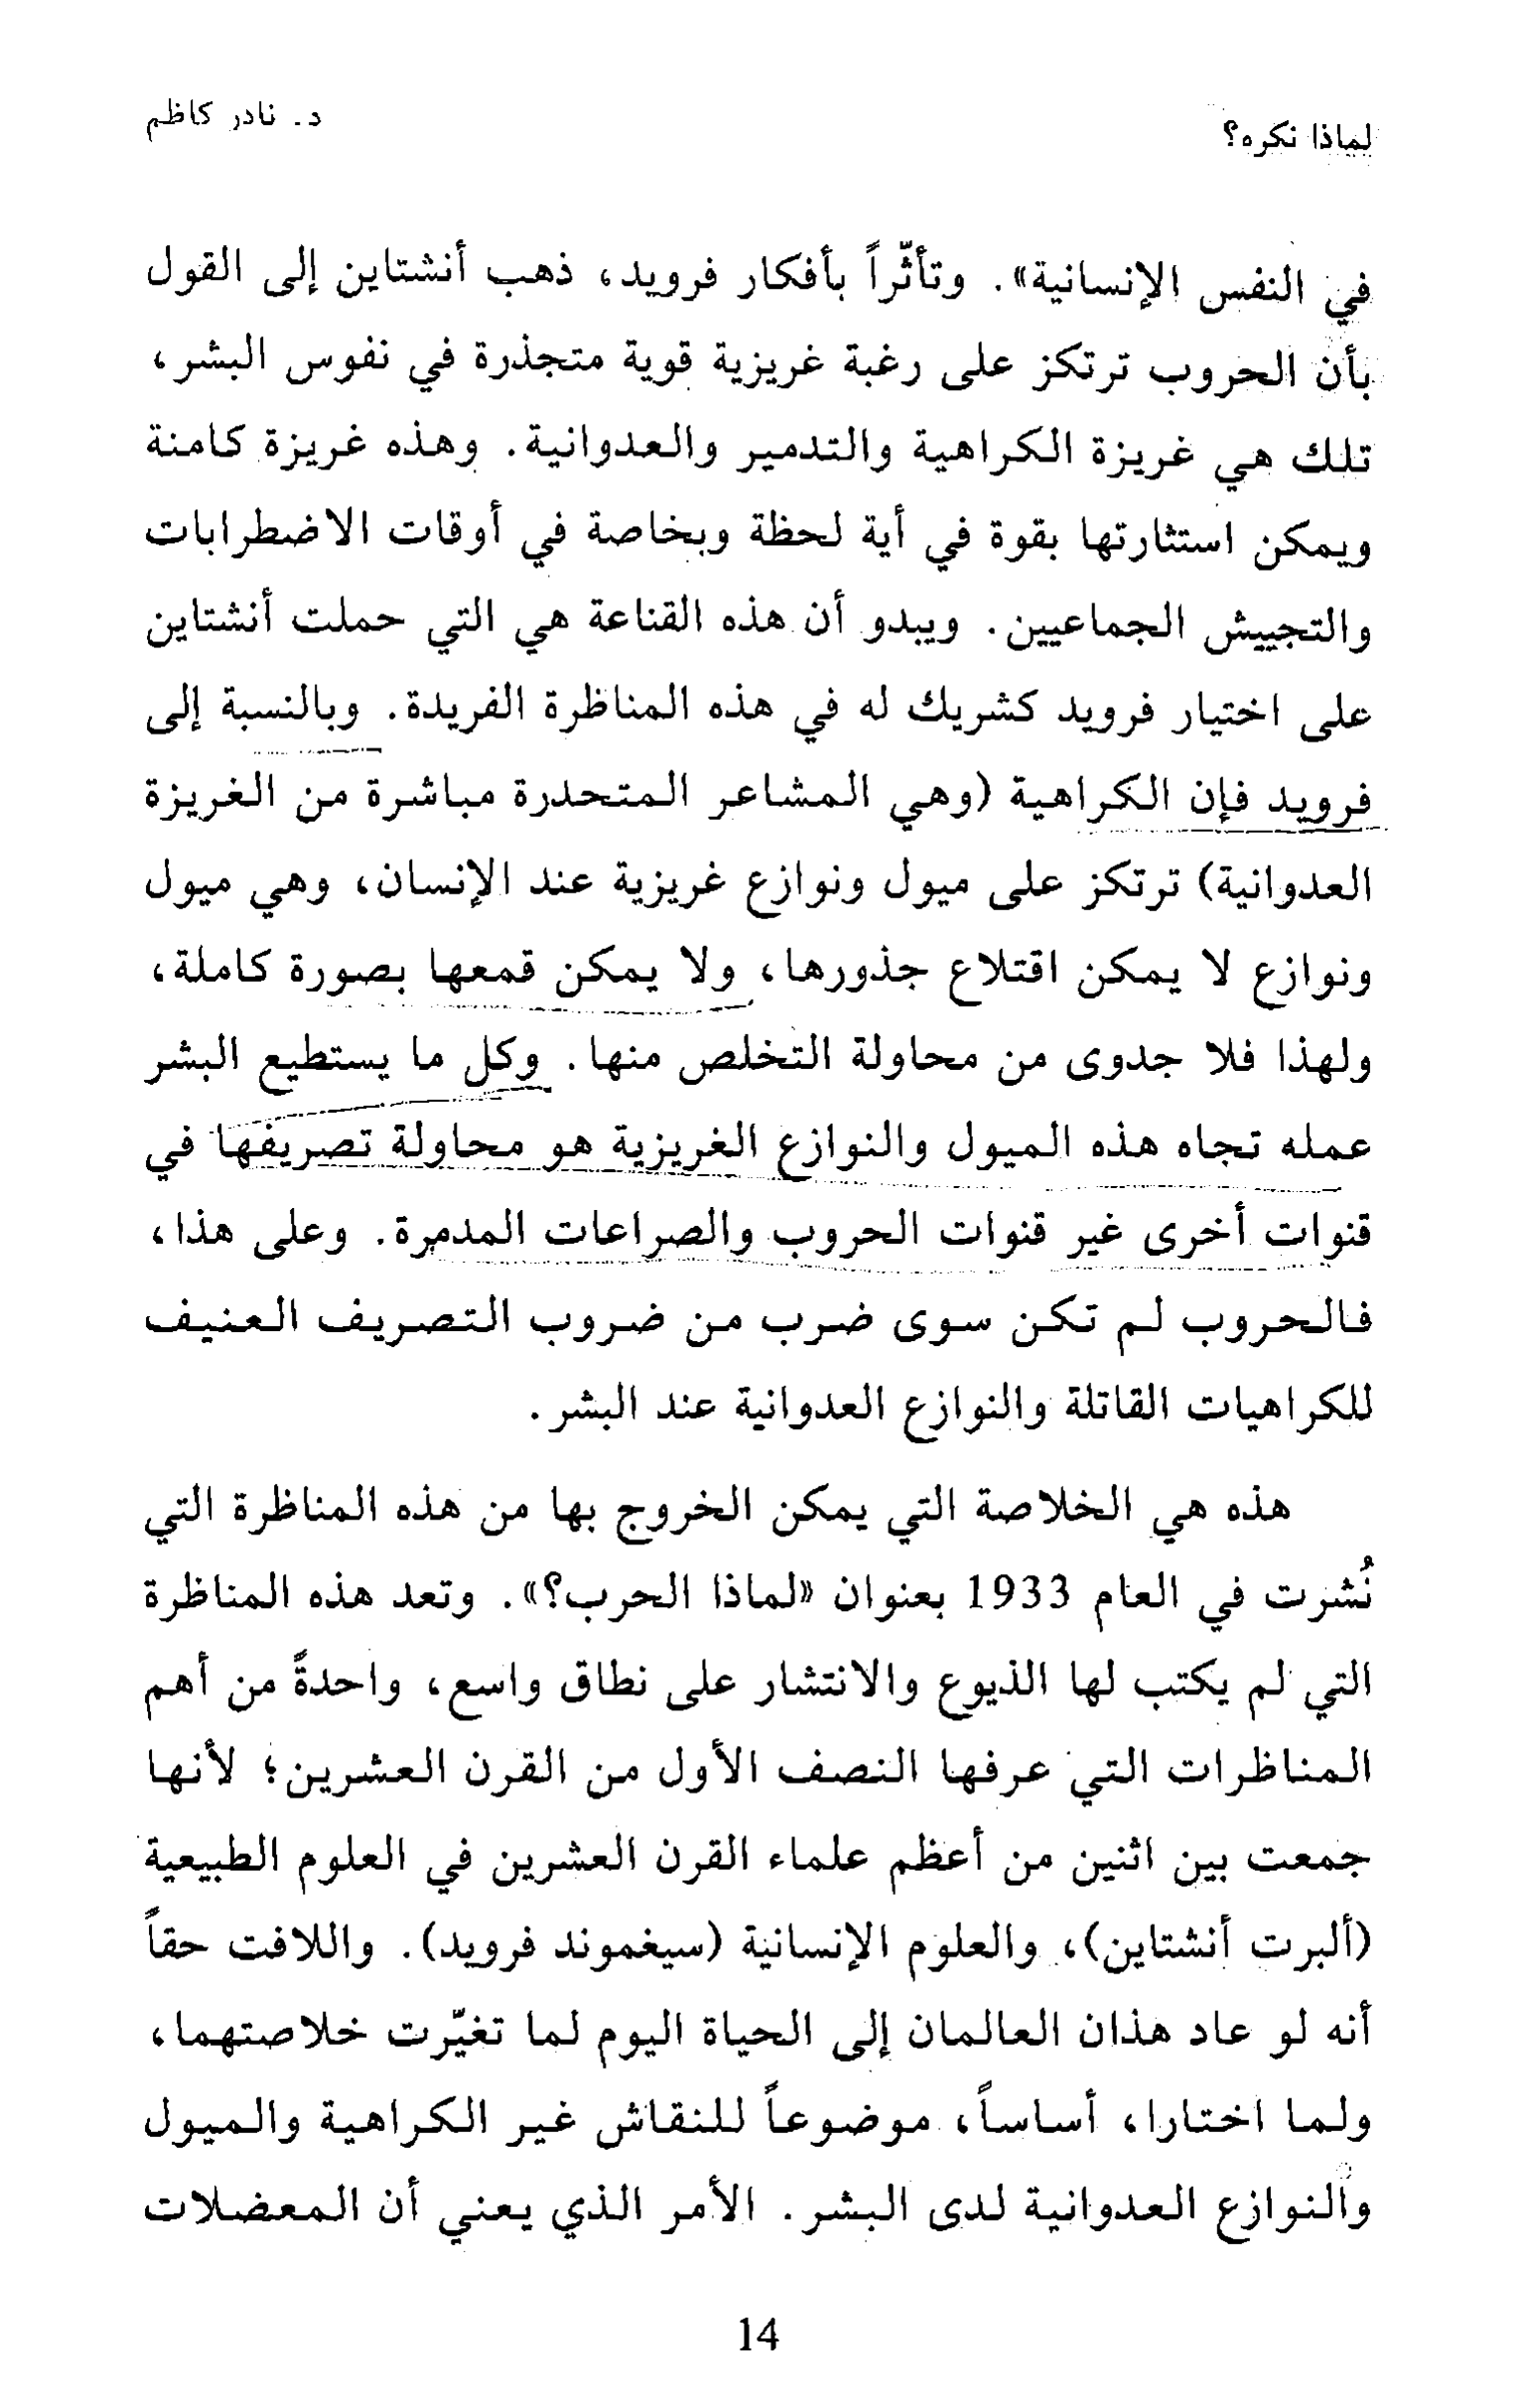 لماذا نكره؟
د. نادر كاظم
في النفس الإنسانية». وتأثّراً بأفكار فرويد، ذهب أنشتاين إلى القول
بأن الحروب ترتكز على رغبة غريزية قوية متجذرة في نفوس البشر،
تلك هي غريزة الكراهية والتدمير والعدوانية. وهذه غريزة كامنة
ويمكن استثارتها بقوة في أية لحظة وبخاصة في أوقات الاضطرابات
والتجييش الجماعيين. ويبدو أن هذه القناعة هي التي حملت أنشتاين
على اختيار فرويد كشريك له في هذه المناظرة الفريدة. وبالنسبة إلى
فرويد فإن الكراهية (وهي المشاعر المتحدرة مباشرة من الغريزة
العدوانية) ترتكز على ميول ونوازع غريزية عند الإنسان، وهي ميول
ونوازع لا يمكن اقتلاع جذورها، ولا يمكن قمعها بصورة كاملة،
ولهذا فلا جدوى من محاولة التخلص منها. وكل ما يستطيع البشر
عمله تجاه هذه الميول والنوازع الغريزية هو محاولة تصريفها في
قنوات أخرى غير قنوات الحروب والصراعات المدمرة. وعلى هذا،
فالحروب لم تكن سوى ضرب من ضروب التصريف العنيف
للكراهيات القاتلة والنوازع العدوانية عند البشر.
هذه هي الخلاصة التي يمكن الخروج بها من هذه المناظرة التي
نُشرت في العام 1933 بعنوان «لماذا الحرب؟». وتعد هذه المناظرة
التي لم يكتب لها الذيوع والانتشار على نطاق واسع، واحدةً من أهم
المناظرات التي عرفها النصف الأول من القرن العشرين؛ لأنها
جمعت بين اثنين من أعظم علماء القرن العشرين في العلوم الطبيعية
(ألبرت أنشتاين)، والعلوم الإنسانية (سيغموند فرويد). واللافت حقاً
أنه لو عاد هذان العالمان إلى الحياة اليوم لما تغيّرت خلاصتهما،
ولما اختارا، أساساً، موضوعاً للنقاش غير الكراهية والميول
والنوازع العدوانية لدى البشر. الأمر الذي يعني أن المعضلات
14